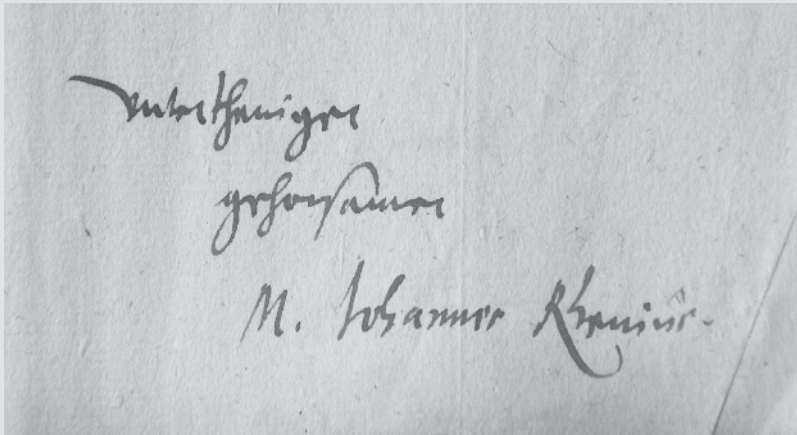 vntertheniger
gehorsamer
M. Johannes Rhenius.